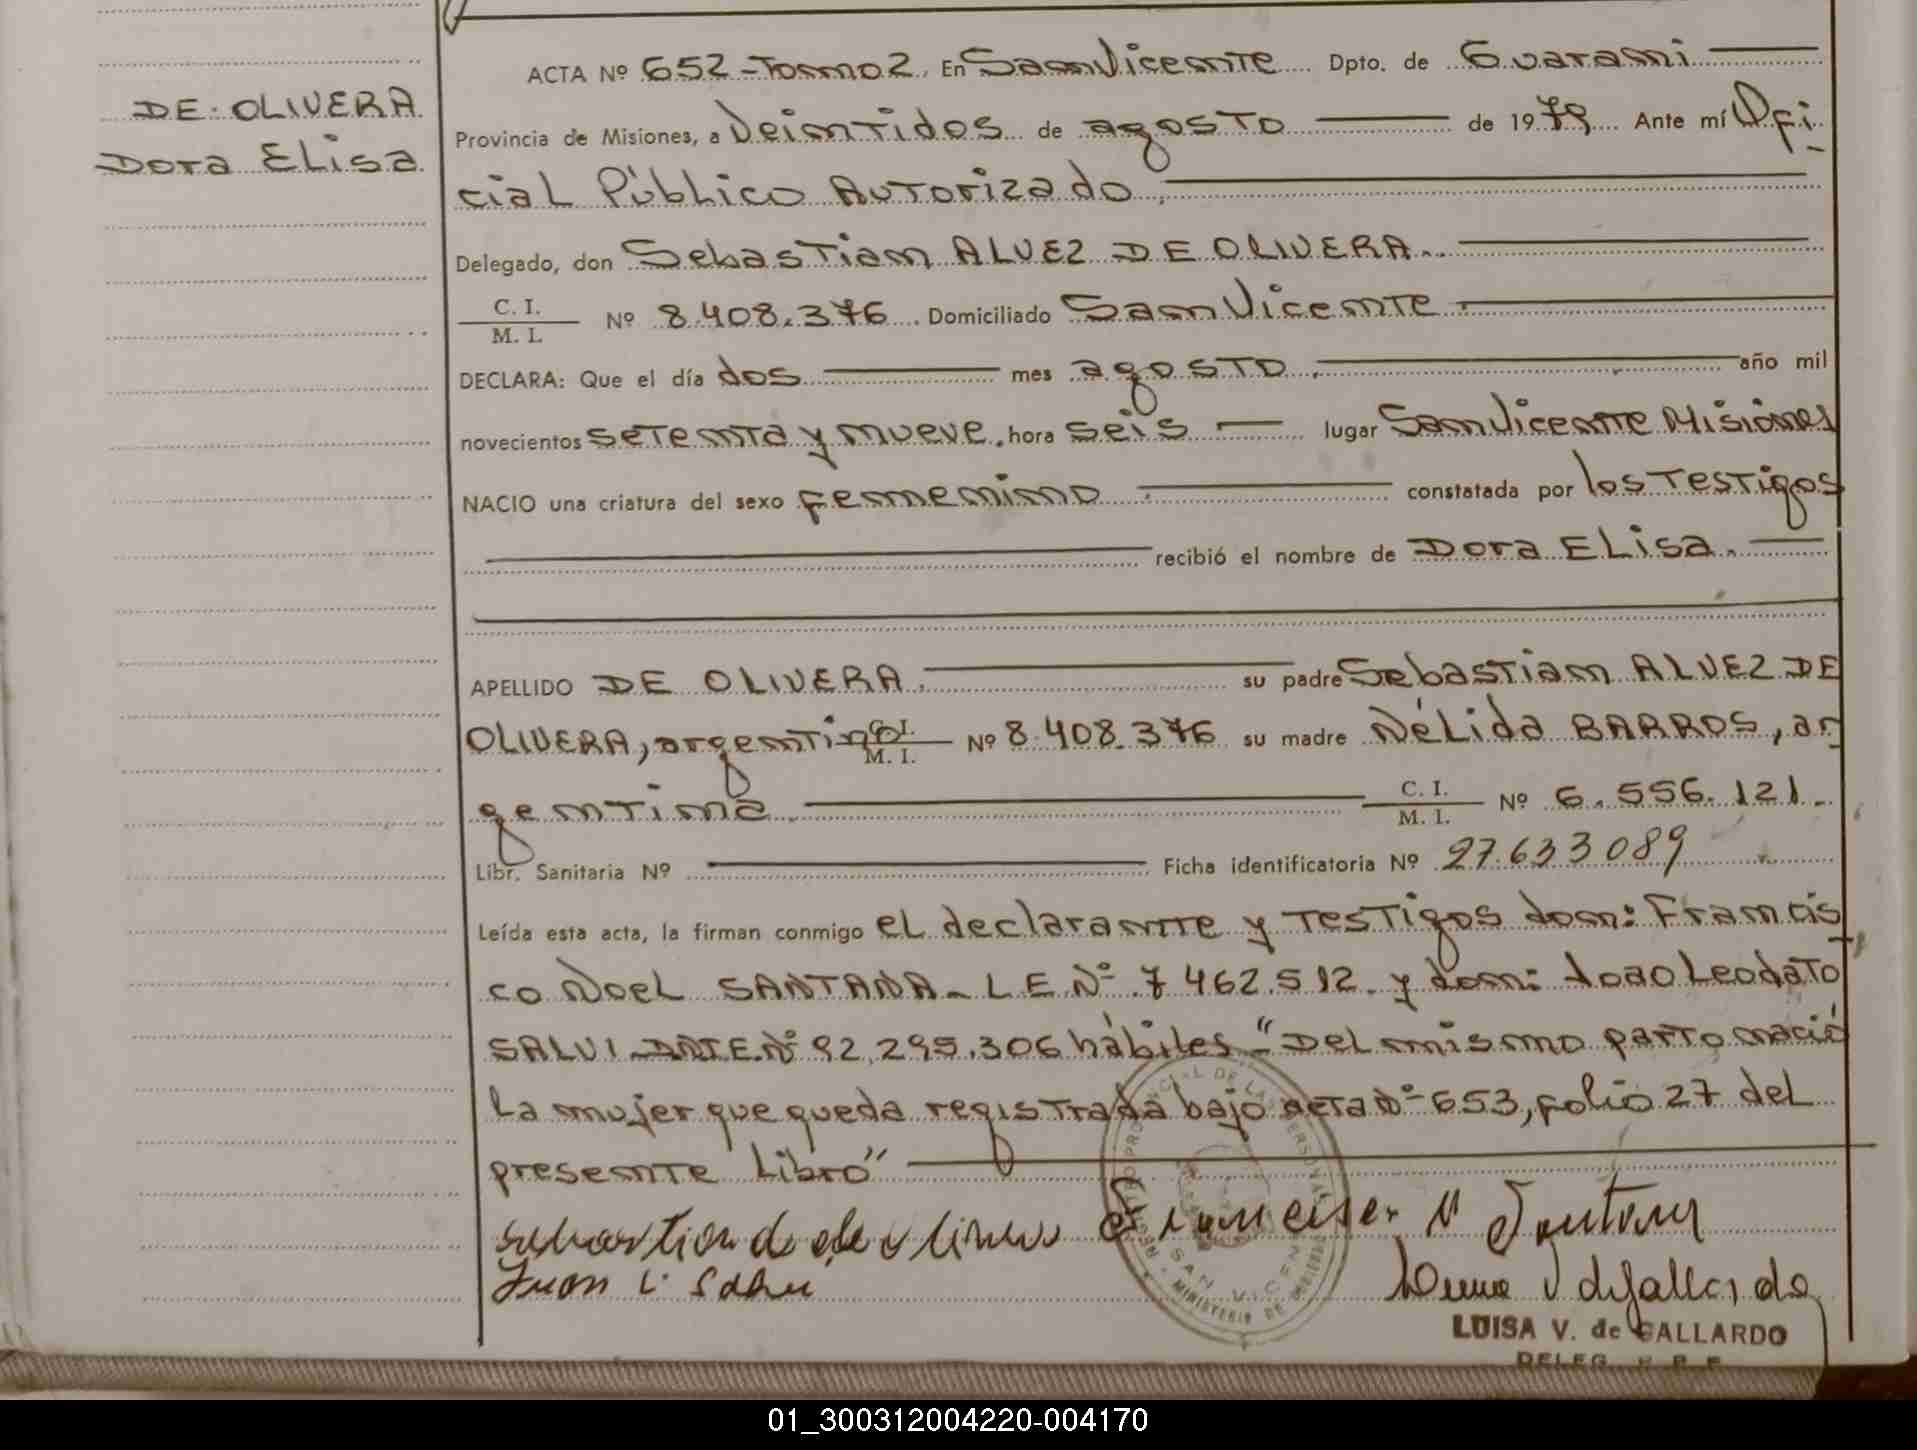 DE OLIVERA
Dora Elisa
ACTA Nº 652 - Tomo 2. En San Vicente Dpto. de Guarani
Provincia de Misiones, a Veintidos de agosto de 1979 Ante mí Ofi
cial Público Autorizado,
Delegado, don Sebastian ALVEZ DE OLIVERA.
C. I.
M. I. Nº 8.408.376 Domiciliado San Vicente
DECLARA: Que el día dos mes agosto año mil
novecientos setenta y nueve, hora seis lugar San Vicente Misiones
NACIO una criatura del sexo femenino constatada por los testigos
recibió el nombre de Dora Elisa.
APELLIDO DE OLIVERA su padre Sebastian ALVEZ DE
OLIVERA, argentino C. I. M. I. Nº 8.408.376 su madre Nélida BARROS, ar
gentina C. I. M. I. Nº 6.556.121.
Libr. Sanitaria Nº Ficha identificatoria Nº 27.633089
Leída esta acta, la firman conmigo el declarante y testigos don: Francis
co Noel SANTANA - L E Nº 7 462.512 y don: Joao Leodato
SALVI Nº 92,295.306 hábiles - "Del mismo parto nació
la mujer que queda registrada bajo acta Nº 653, folio 27 del
presente Libro"
Francisco N Santana
Juan L. Salvi
SAN VICENTE
MINISTERIO DE
LUISA V. de GALLARDO
DELEG.
01_300312004220-004170